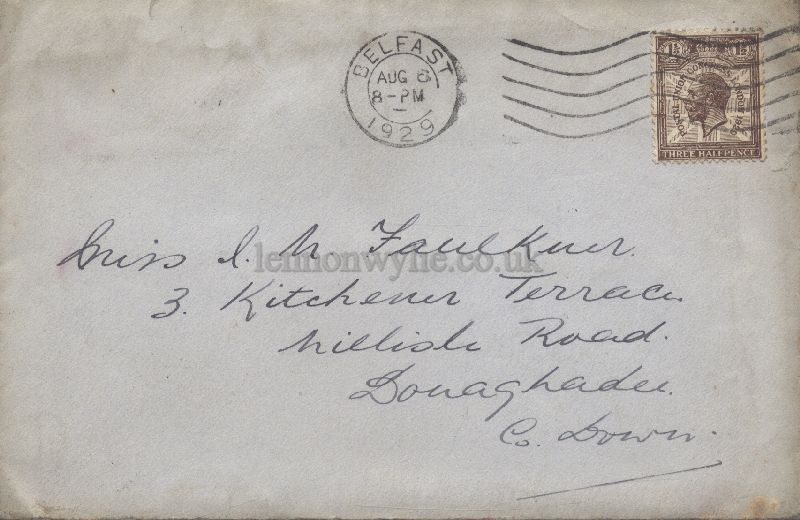 BELFAST
AUG 6
8-PM
1929
1½ 1½
POSTAL UNION CONGRESS LONDON 1929
THREE HALFPENCE
Miss I. M Faulkner.
lennonwylie.co.uk
3. Kitchener Terrace
Millisle Road.
Donaghadee.
Co. Down.